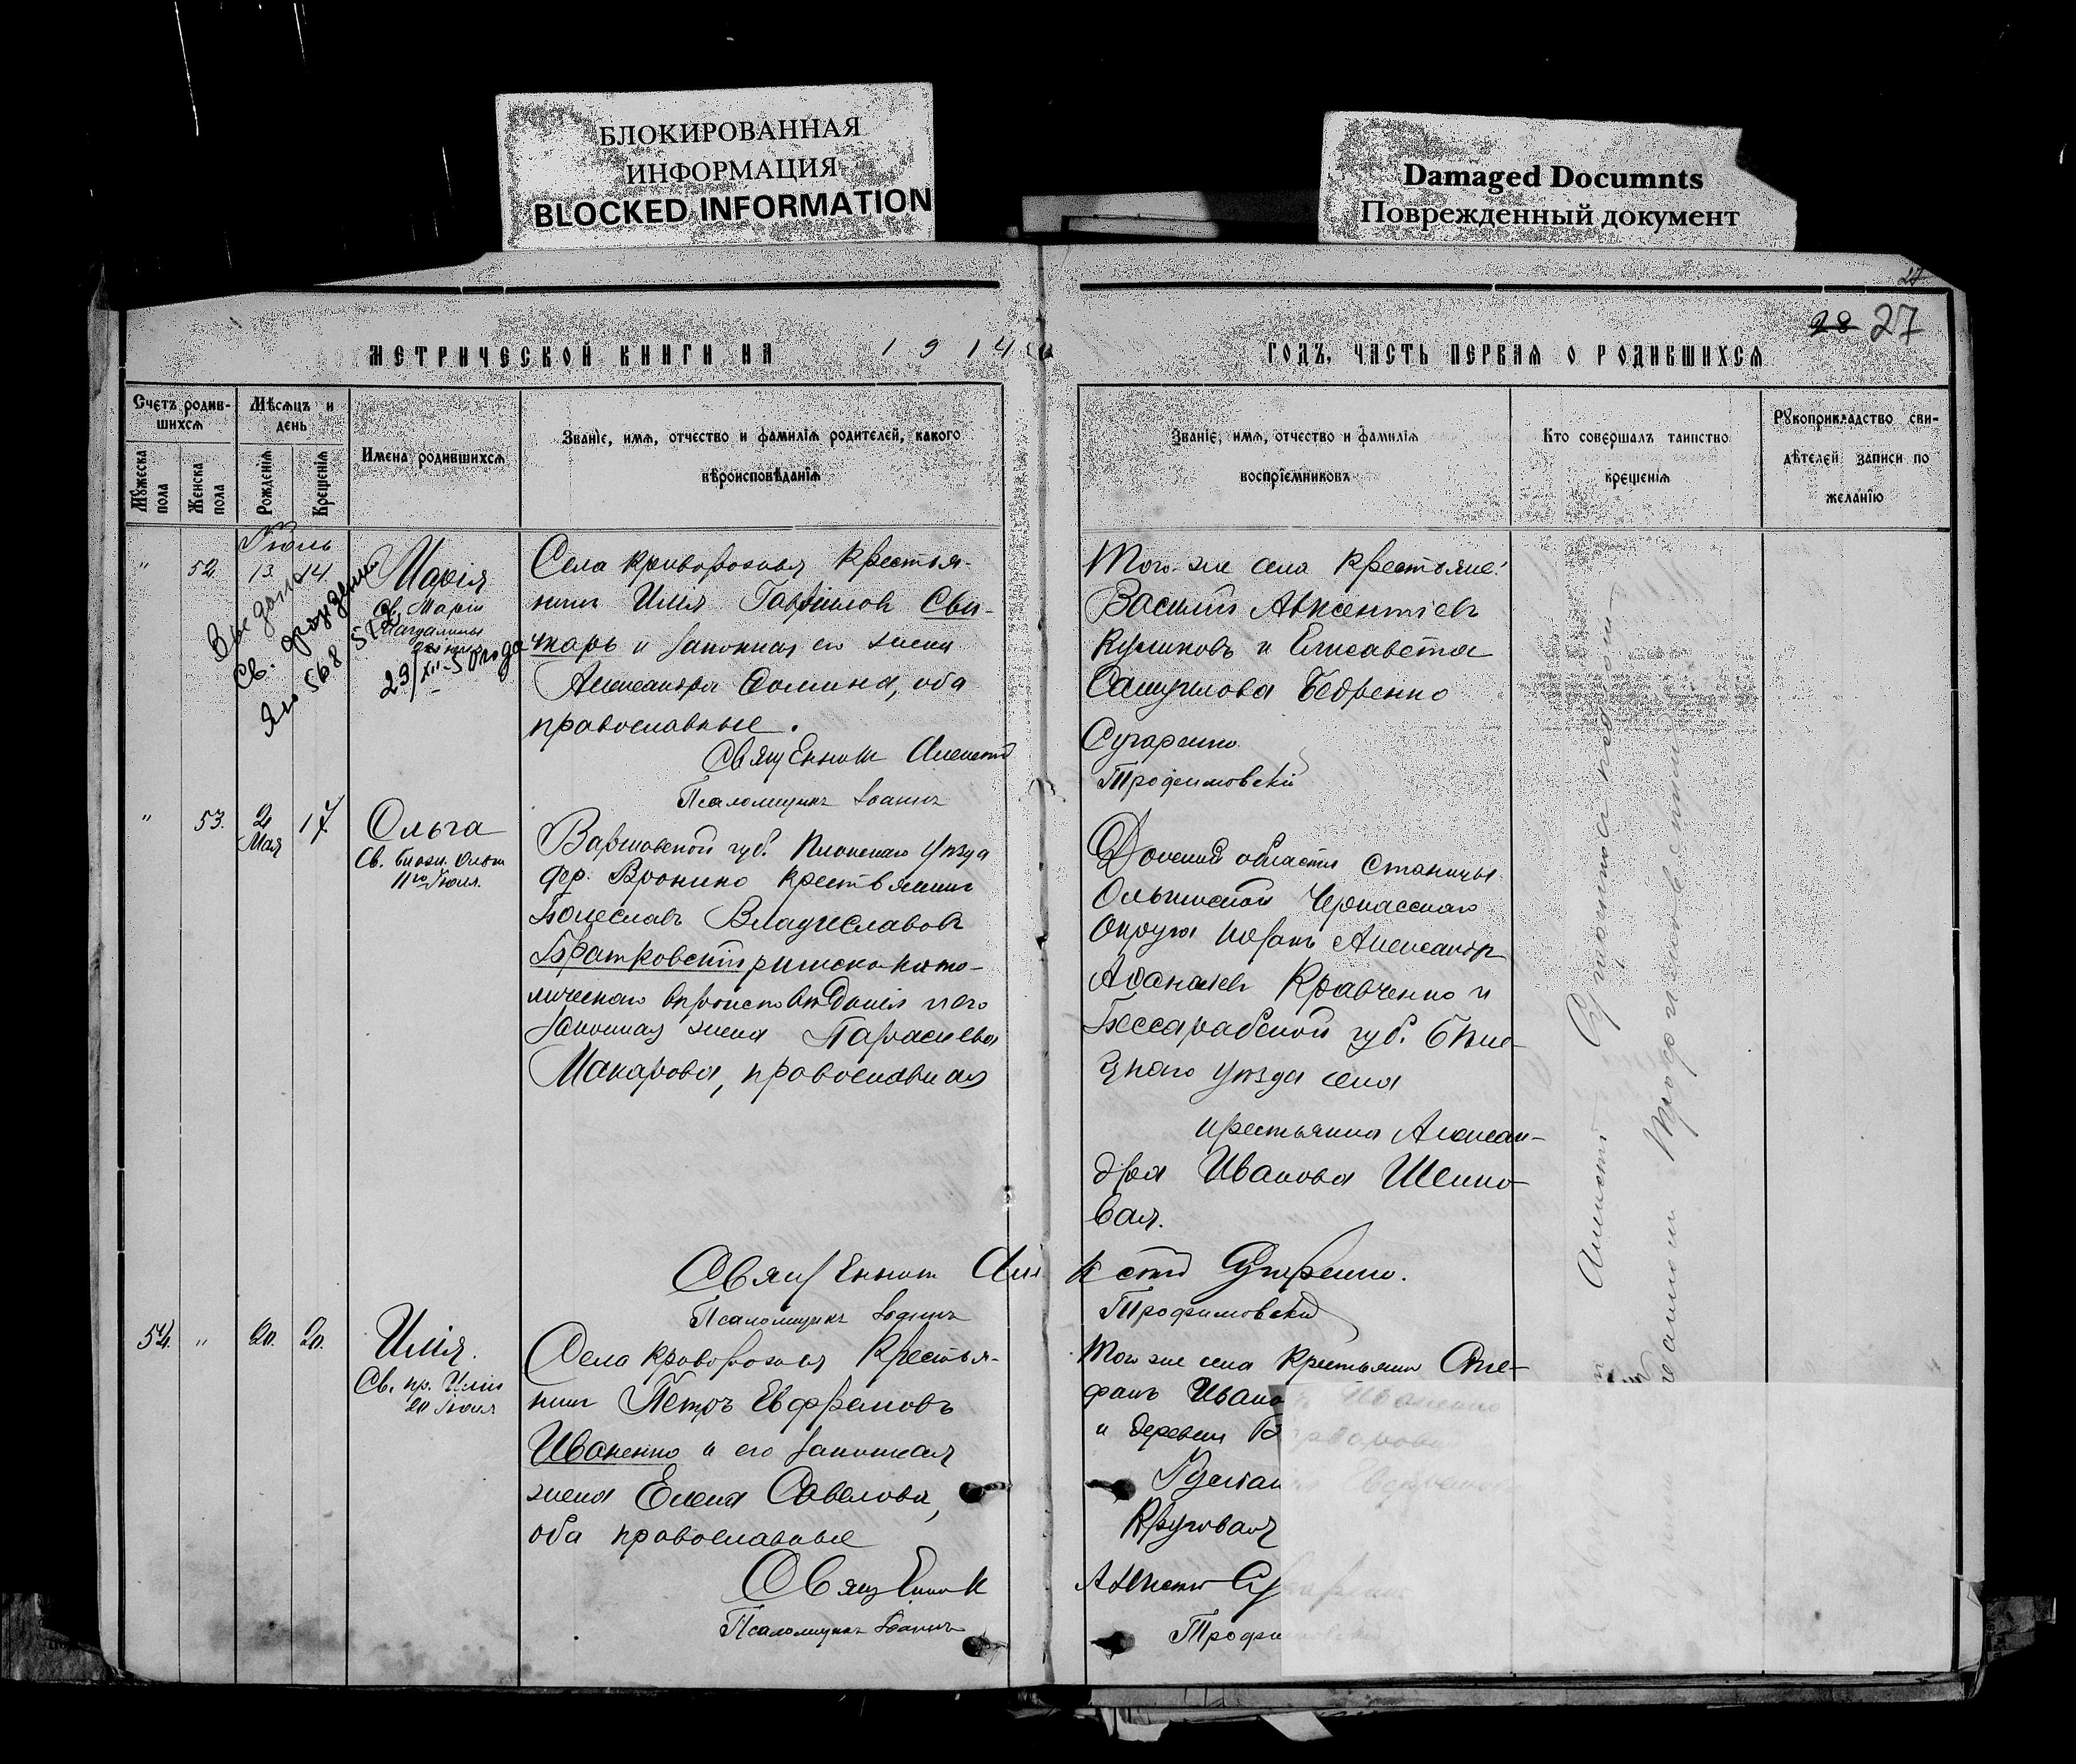 БЛОКИРОВАННАЯ
ИНФОРМАЦИЯ
BLOCKED INFORMATION
Damaged Documnts
Поврежденный документ
27
28 27
МЕТРИЧЕСКОЙ КНИГИ НА 1914
ГОДЪ, ЧАСТЬ ПЕРВАЯ О РОДИВШИХСЯ
Счетъ родив-
шихся
Мѣсяцъ и
день
Мужеска
пола
Женска
пола
Рожденія
Крещенія
Имена родившихся
Званіе, имя, отчество и фамилія родителей, какого
вѣроисповѣданія
Званіе, имя, отчество и фамилія
воспріемниковъ
Кто совершалъ таинство
крещенія
Рукоприкладство сви-
дѣтелей записи по
желанію
Іюль
" 52 13 14
Марія
Св. Маріи
Магдалины
Выдано
св. рождении
568
29/XII-50 года
Села Криворожья крестья-
нинъ Илія Гавріиловъ Сви-
нарь и законная его жена
Александра Ѳомина, оба
православные.
Священник Алексій
Псаломщикъ Іоаннъ
Того-же села крестьяне:
Василій Авксентіевъ
Куликовъ и Елисавета
Самуилова Бедренко
Сухаренко
Трофимовскій
" 53. 2 17
Мая
Ольга
Св. благ. Ольги
11го Іюля.
Варшавской губ. Плонскаго уѣзда
дер. Вронино крестьянинъ
Болеславъ Владиславовъ
Братковскій римско-като-
лическаго вѣроисповѣданія и его
законная жена Параскева
Макарова, православная
Священник
Псаломщикъ Іоаннъ
Донской области станицы
Ольгинской Черкасскаго
Округа казакъ Александръ
Аѳанасіевъ Кравченко и
Бессарабской губ. Бѣле-
цкаго уѣзда села
крестьянка Алексан-
дра Иванова Шелко-
вая.
Трофимовскій
54. " 20. 20.
Илія.
Св. пр. Иліи
20 Іюля
Села Криворожья крестья-
нинъ Петръ Евфремовъ
Иваненко и его законная
жена Елена Савелова,
оба православные
Священник
Псаломщикъ Іоаннъ
Того же села крестьянинъ Сте-
фанъ Ивано
и деревни
Круговая
Трофимовскій